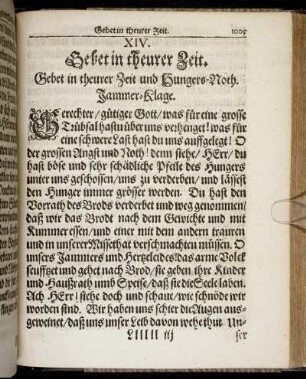 Gebet in theurer Zeit. 1005
XIV.
Gebet in theurer Zeit.
Gebet in theurer Zeit und Hungers-Noth.
Jammer-Klage.
Gerechter/ gütiger Gott/ was für eine grosse
Trübsal hastu über uns verhenget! was für
eine schwere Last hast du uns auffgelegt! O
der grossen Angst und Noth! denn siehe/ HErr/ du
hast böse und sehr schädliche Pfeile des Hungers
unter uns geschossen/ uns zu verderben/ und lässest
den Hunger immer grösser werden. Du hast den
Vorrath des Brods verderbet und weg genommen/
daß wir das Brodt nach dem Gewichte und mit
Kummer essen/ und einer mit dem andern trauren
und in unserer Missethat verschmachten müssen. O
unsers Jammers und Hertzeleides! das arme Volck
seufftzet und gehet nach Brod/ sie geben ihre Kinder
und Haußrath umb Speise/ daß sie die Seele laben.
Ach HErr! siehe doch und schaue/ wie schnöde wir
worden sind. Wir haben uns schier die Augen aus-
geweinet/ daß uns unser Leib davon wehe thut. Un-
Lllll iij ser